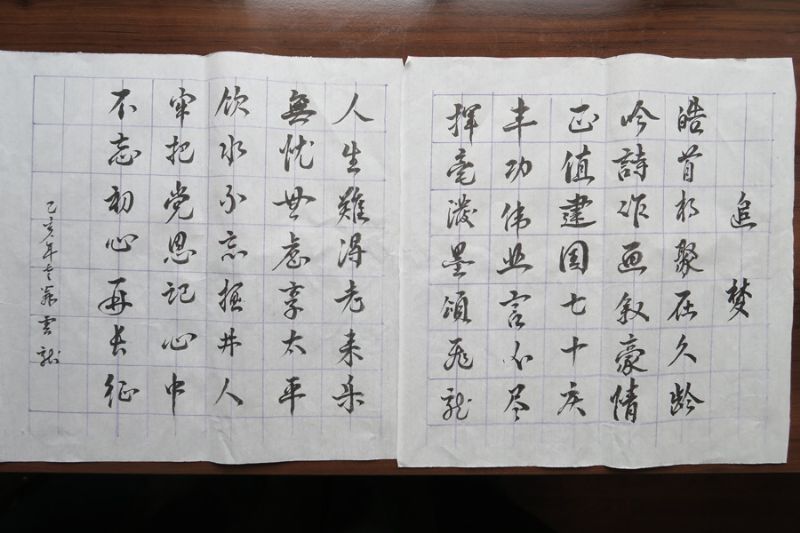 追梦
皓首相聚在久龄
吟詩作画叙豪情
正值建国七十庆
丰功伟业言不尽
挥毫泼墨颂飞龙
人生難得老来乐
無忧無虑享太平
饮水不忘掘井人
牢把党恩记心中
不忘初心再长征
己亥年雲龙